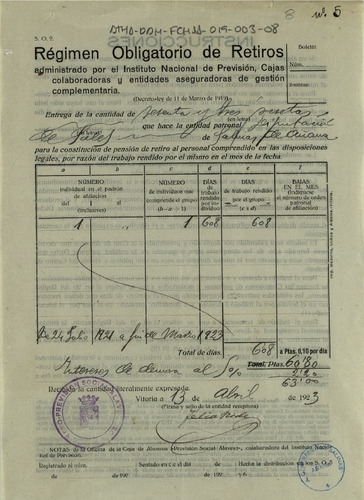 ATHA-DDH-FCHJJ-015-003-08
8 nº 5
S. O. 2.
Régimen Obligatorio de Retiros
administrado por el Instituto Nacional de Previsión, Cajas
colaboradoras y entidades aseguradoras de gestión
complementaria.
Boletín
Núm.
(Decreto-ley de 11 de Marzo de 1919)
Entrega de la cantidad de sesenta y tres pesetas
(en letra)
que hace la entidad patronal
para la constitución de pensión de retiro al personal comprendido en las disposiciones
legales, por razón del trabajo rendido por el mismo en el mes de la fecha.
a b c d e
NÚMERO
individual en el padrón
de afiliación
del 1 al
(inclusives)
NÚMERO
de individuos que
comprende el grupo
(b - a + 1)
DÍAS
de trabajo
rendido
por
individuo
DÍAS
de trabajo rendido
por el grupo
(c x d)
BAJAS
EN EL MES
(Indíquese
el número de orden
patronal
de afiliación)
1 1 608 608
De 24 Julio 1921 a fin de Marzo 1923
Total de días. 608 a Ptas. 0,10 por día
Total, Ptas. 60'80
Intereses de demora al 5 o/o 2'20
63'00
Recibo la cantidad literalmente expresada.
Vitoria a 13 de Abril de 1923
(Firma y sello de la entidad receptora)
NOTAS de la Oficina de la Caja de Ahorros «Previsión Social Alavesa», colaboradora del Instituto Nacional de Previsión.
Registrado al núm.
de de 192
Sentado en c/c el día
de de 192
Hecha la distribución en los S. O. 5
el de de 192